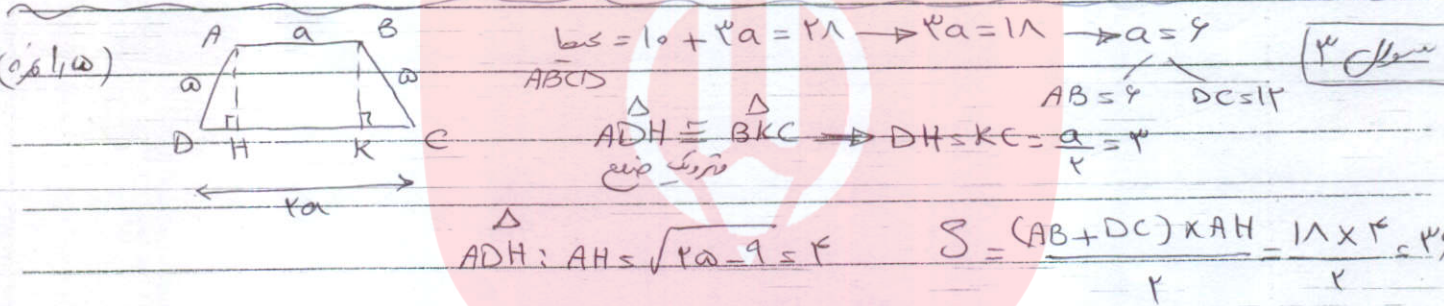 سوال ۳
(۱٫۵ نمره)
A a B
۵ ۵
D H K C
۲a
محیط ABCD = ۱۰ + ۳a = ۲۸ → ۳a = ۱۸ → a = ۶
AB = ۶ DC = ۱۲
ADH ≅ BKC → DH = KC = a/۲ = ۳
وتر و یک ضلع
ADH : AH = √(۲۵ - ۹) = ۴
S = (AB + DC) × AH / ۲ = ۱۸ × ۴ / ۲ = ۳۶